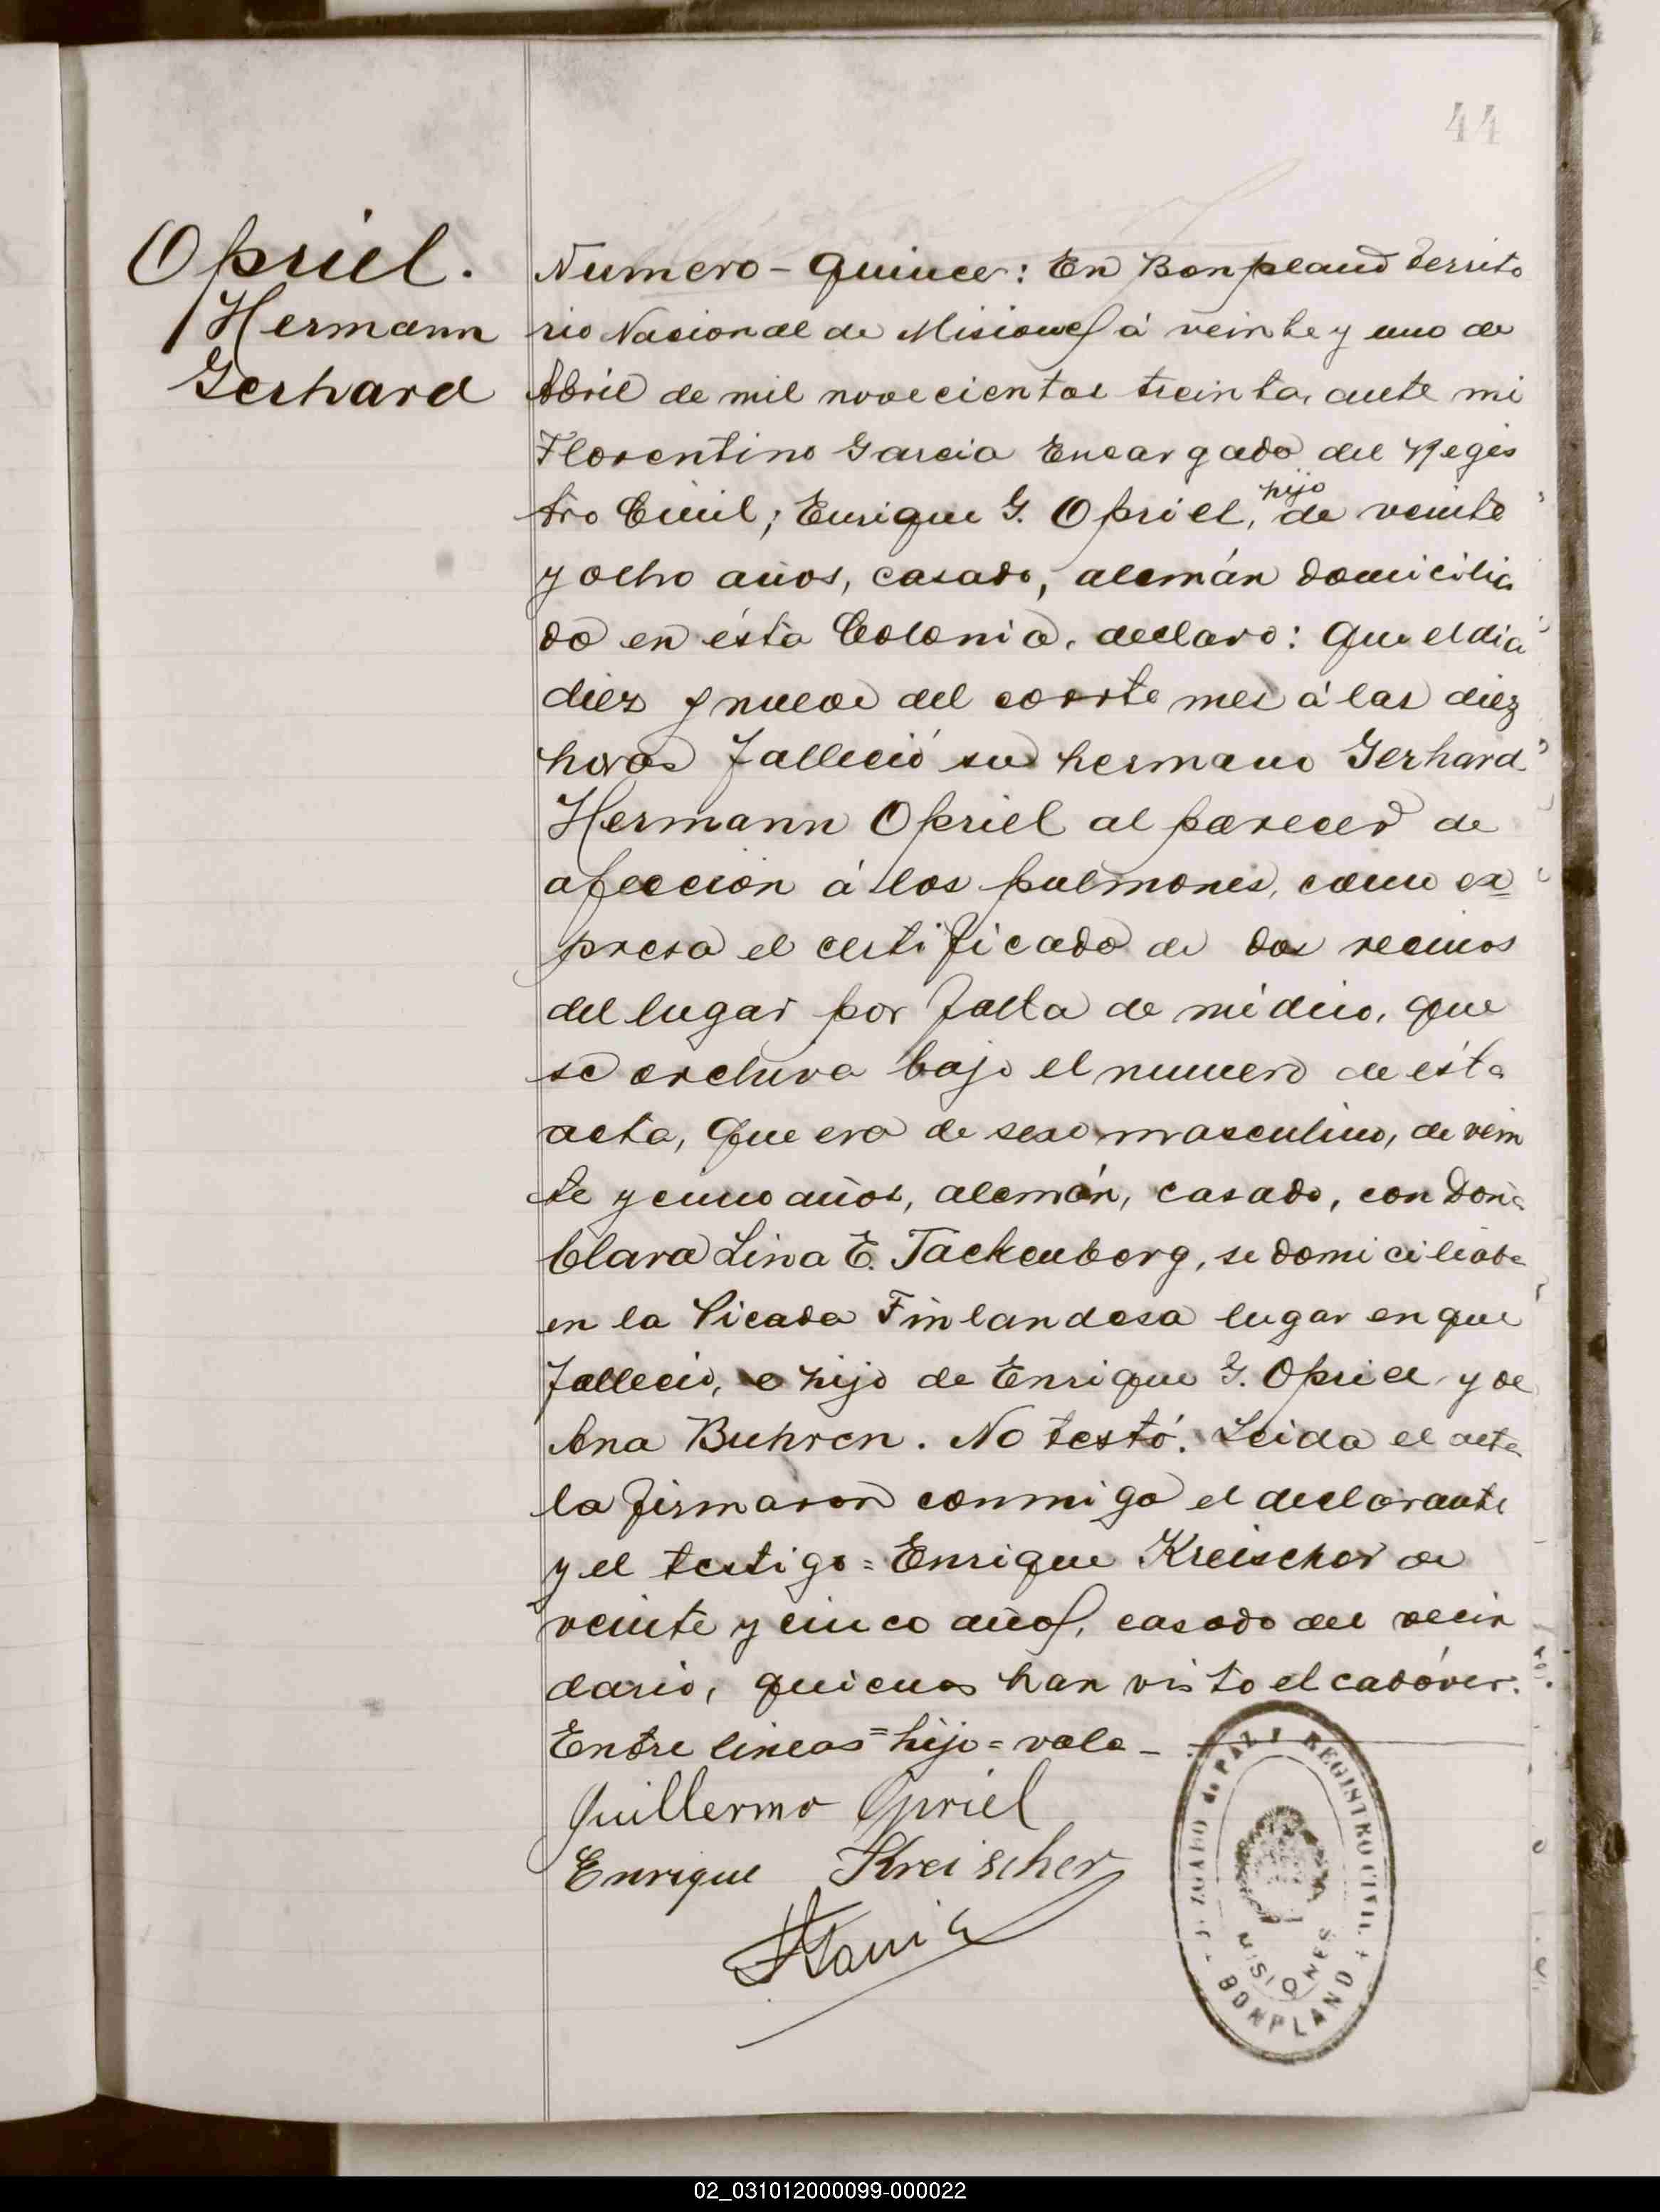 44
Opriel.
Hermann
Gerhard
Numero - Quince: En Bonpland Territo
rio Nacional de Misiones á veinte y uno de
Abril de mil novecientos treinta, ante mi
Florentino Garcia Encargado del Regis
tro Civil; Enrique G. Opriel, hijo de veinte
y ocho años, casado, alemán domicilia
do en ésta Colonia, declaro: Que el dia
diez y nueve del corrte mes á las diez
horas falleció su hermano Gerhard
Hermann Opriel al parecer de
afeccion á los pulmones, como ex=
presa el certificado de dos vecinos
del lugar por falta de médico, que
se archiva bajo el numero de ésta
acta, Que era de sexo masculino, de vein
te y cinco años, alemán, casado, con Doña
Clara Lina E. Tackenberg, se domiciliaba
en la Picada Finlandesa lugar en que
falleció, e hijo de Enrique G. Opriel y de
Ana Buhren. No testó. Leida el acta
la firmaron conmigo el declarante
y el testigo = Enrique Kreischer de
veinte y cinco años, casado del vecin
dario, quienes han visto el cadáver.
Entre lineas = hijo = vale -
Guillermo Opriel
Enrique Kreischer
JUZGADO de PAZ Y REGISTRO CIVIL
MISIONES
BONPLAND
02_031012000099-000022